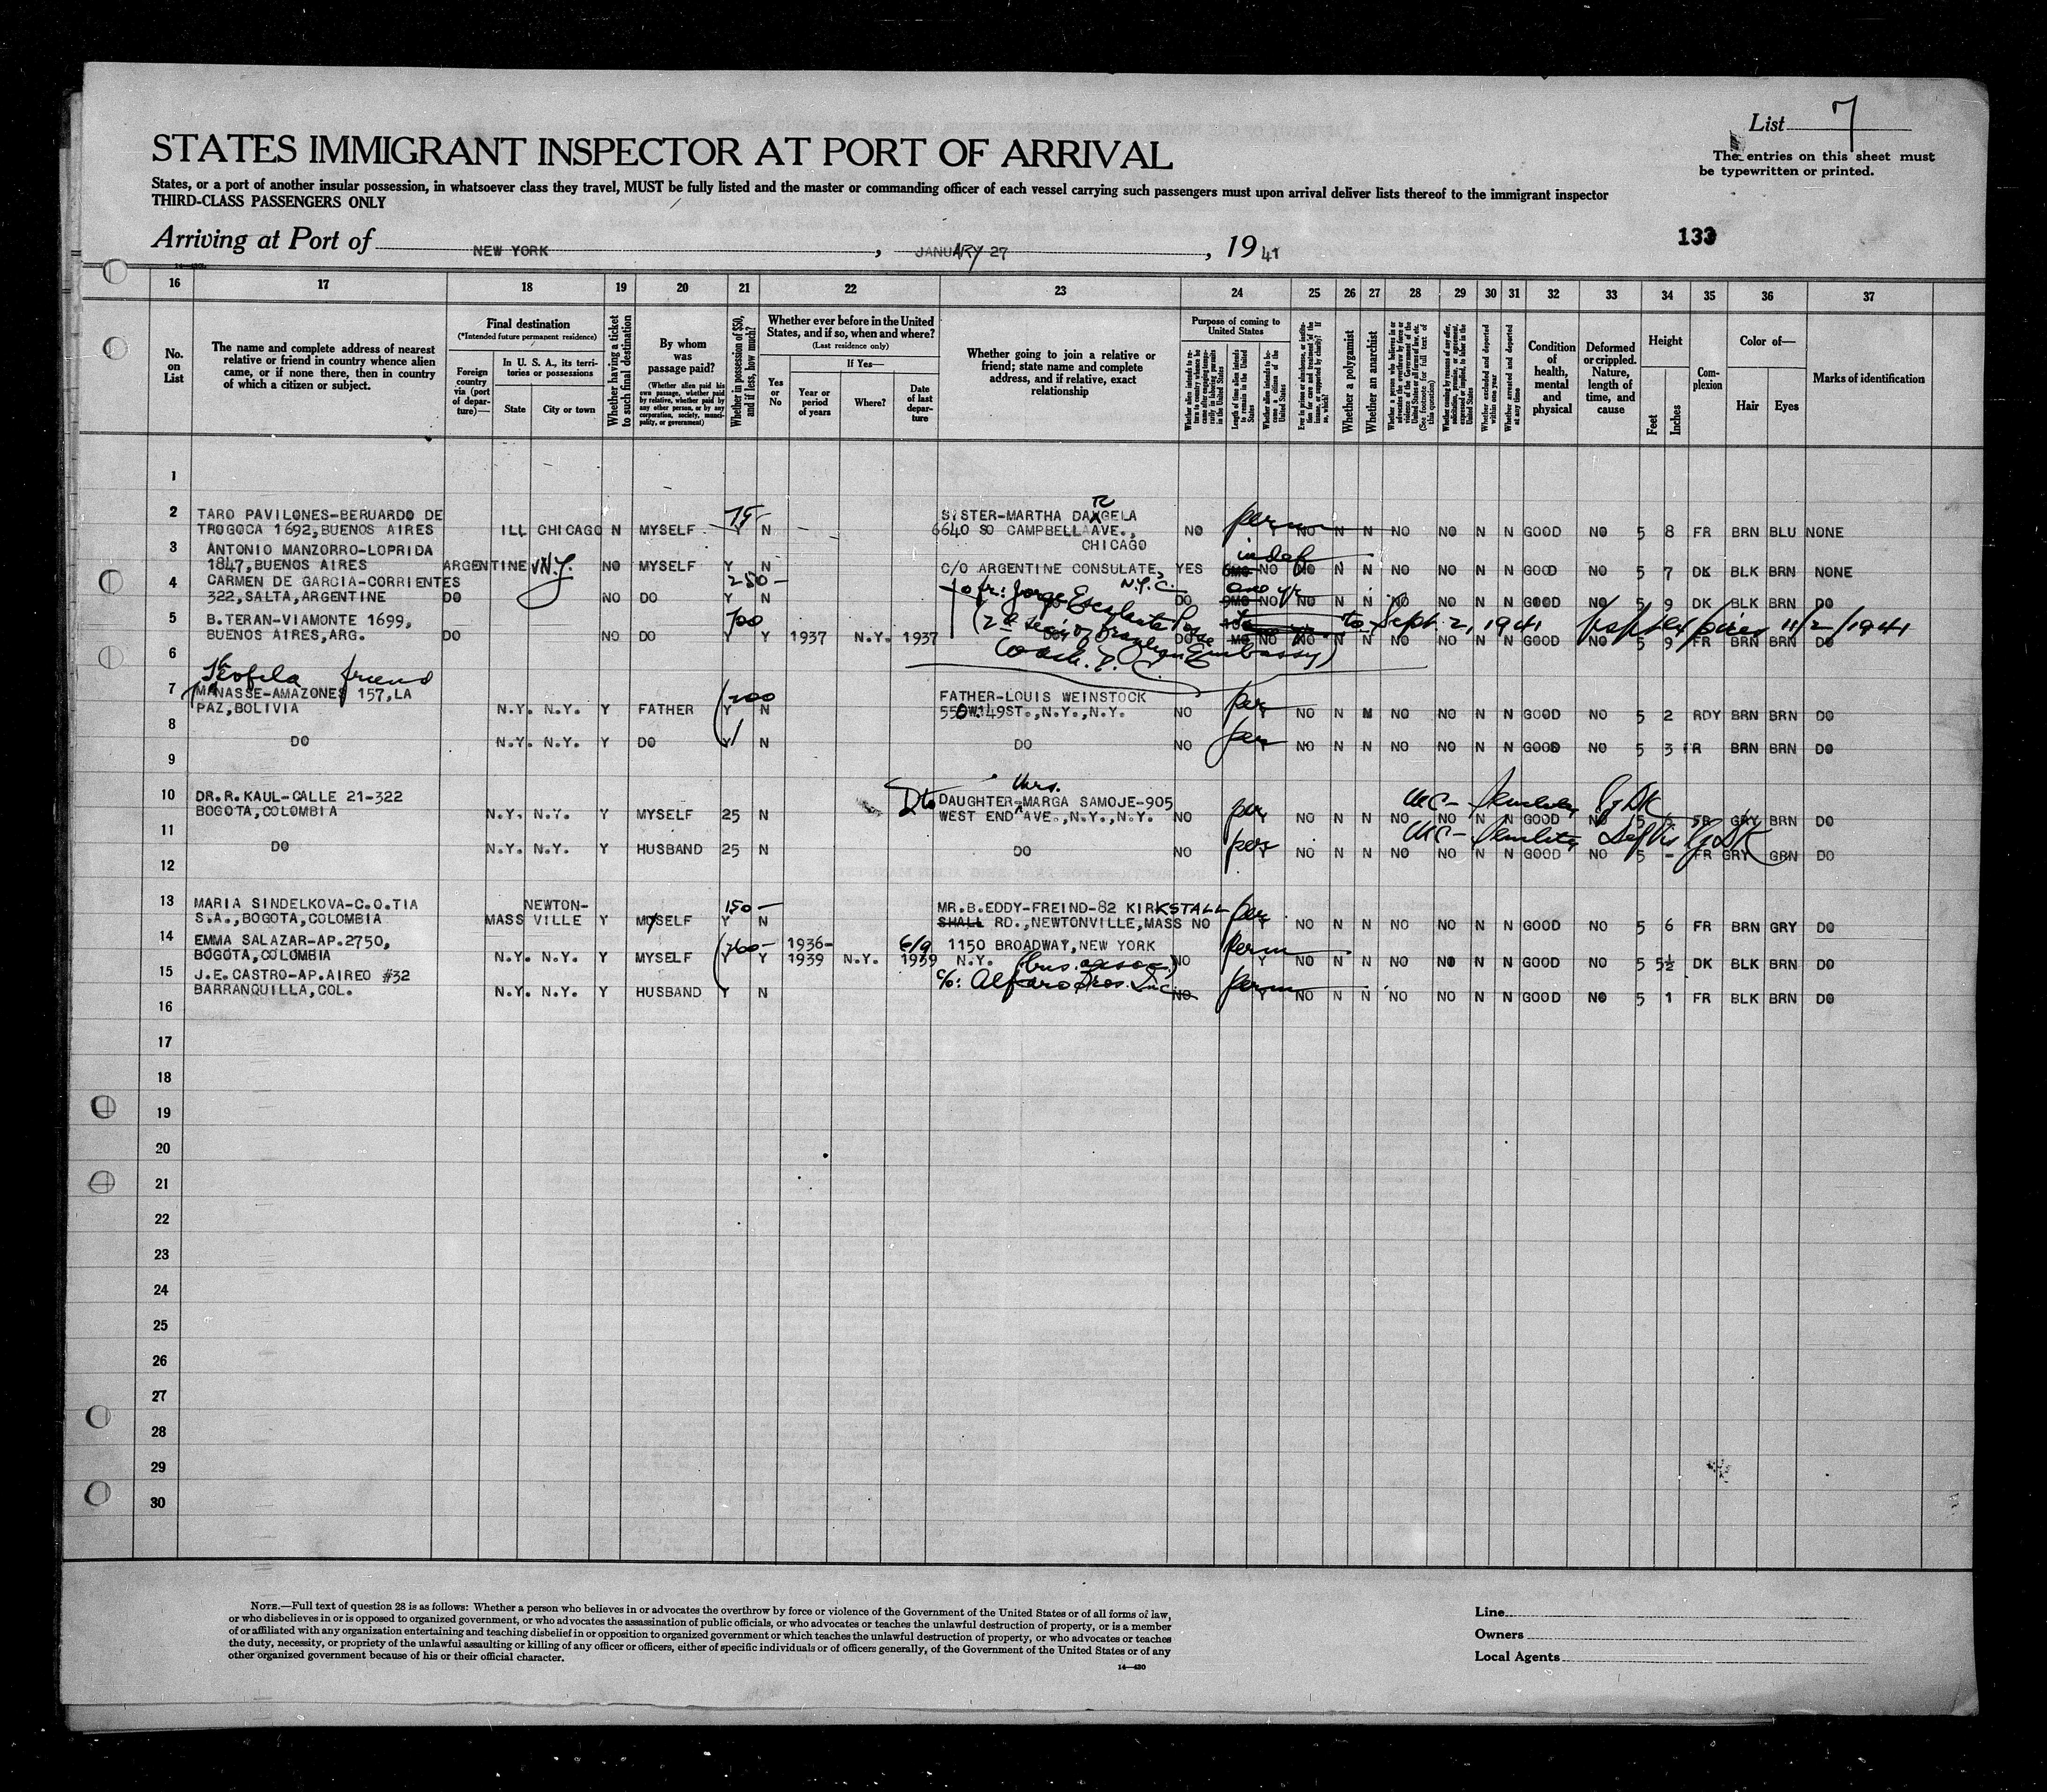 List 7
STATES IMMIGRANT INSPECTOR AT PORT OF ARRIVAL
The entries on this sheet must
be typewritten or printed.
States, or a port of another insular possession, in whatsoever class they travel, MUST be fully listed and the master or commanding officer of each vessel carrying such passengers must upon arrival deliver lists thereof to the immigrant inspector
THIRD-CLASS PASSENGERS ONLY
133
Arriving at Port of NEW YORK, JANUARY 27, 1941
16 17 18 19 20 21 22 23 24 25 26 27 28 29 30 31 32 33 34 35 36 37
No. on List
The name and complete address of nearest relative or friend in country whence alien came, or if none there, then in country of which a citizen or subject.
Final destination
(*Intended future permanent residence)
Foreign country via (port of departure)—
In U. S. A., its territories or possessions
State
City or town
Whether having a ticket to such final destination
By whom was passage paid?
(Whether alien paid his own passage, whether paid by relative, whether paid by any other person, or by any corporation, society, municipality, or government)
Whether in possession of $50, and if less, how much?
Whether ever before in the United States, and if so, when and where?
(Last residence only)
Yes or No
If Yes—
Year or period of years
Where?
Date of last departure
Whether going to join a relative or friend; state name and complete address, and if relative, exact relationship
Purpose of coming to United States
Length of time alien intends to remain in the United States
Whether alien intends to become a citizen of the United States
Whether a polygamist
Whether an anarchist
Whether excluded and deported within one year
Whether arrested and deported at any time
Condition of health, mental and physical
Deformed or crippled. Nature, length of time, and cause
Height
Feet
Inches
Complexion
Color of—
Hair
Eyes
Marks of identification
1
2 TARO PAVILONES-BERUARDO DE
TROGOCA 1692, BUENOS AIRES ILL CHICAGO N MYSELF 75 Y N SISTER-MARTHA DARGELA
6640 SO CAMPBELL AVE.,
CHICAGO NO perm Y NO N N NO NO N N GOOD NO 5 8 FR BRN BLU NONE
3 ANTONIO MANZORRO-LOPRIDA
1847, BUENOS AIRES ARGENTINE N.Y. NO MYSELF Y N C/O ARGENTINE CONSULATE, N.Y.C. YES indef 6MO NO NO N N NO NO N N GOOD NO 5 7 DK BLK BRN NONE
4 CARMEN DE GARCIA-CORRIENTES
322, SALTA, ARGENTINE DO NO DO 250- Y N to fr: Jorge DO one yr NO NO N N NO NO N N GOOD NO 5 9 DK BLK BRN DO
5 B. TERAN-VIAMONTE 1699,
BUENOS AIRES, ARG. DO NO DO 700 Y Y 1937 N.Y. 1937 DO MO NO NO N N NO NO N N GOOD NO 5 9 FR BRN BRN DO
to Sept. 2, 1941 11/2/1941
Embassy)
6
Teofila friend
7 MANASSE-AMAZONES 157, LA
PAZ, BOLIVIA N.Y. N.Y. Y FATHER 200 Y N FATHER-LOUIS WEINSTOCK
550W.149ST., N.Y., N.Y. NO per Y NO N N NO NO N N GOOD NO 5 2 RDY BRN BRN DO
8 DO N.Y. N.Y. Y DO Y N DO NO per NO N N NO NO N N GOOD NO 5 3 FR BRN BRN DO
9
10 DR. R. KAUL-CALLE 21-322
BOGOTA, COLOMBIA N.Y. N.Y. Y MYSELF 25 N DAUGHTER-Mrs. MARGA SAMOJE-905
WEST END AVE., N.Y., N.Y. NO per NO N N NO NO N N GOOD NO 5 FR GRY BRN DO
11 DO N.Y. N.Y. Y HUSBAND 25 N DO NO per Y NO N N NO NO N N GOOD NO 5 - FR GRY GRN DO
12
13 MARIA SINDELKOVA-C.O.TIA
S.A., BOGOTA, COLOMBIA MASS NEWTON-
VILLE Y MYSELF 150- Y N MR. B. EDDY-FREIND-82 KIRKSTALL
SHALL RD., NEWTONVILLE, MASS NO per Y NO N N NO NO N N GOOD NO 5 6 FR BRN GRY DO
14 EMMA SALAZAR-AP. 2750,
BOGOTA, COLOMBIA N.Y. N.Y. Y MYSELF 260- Y Y 1936-
1939 N.Y. 6/9 1939 1150 BROADWAY, NEW YORK
N.Y. (bus. assoc.) NO perm Y NO N N NO NO N N GOOD NO 5 5½ DK BLK BRN DO
15 J.E. CASTRO-AP. AIREO #32
BARRANQUILLA, COL. N.Y. N.Y. Y HUSBAND Y N c/o: Alfaro Bros. Inc. NO perm Y NO N N NO NO N N GOOD NO 5 1 FR BLK BRN DO
16
17
18
19
20
21
22
23
24
25
26
27
28
29
30
NOTE.—Full text of question 28 is as follows: Whether a person who believes in or advocates the overthrow by force or violence of the Government of the United States or of all forms of law,
or who disbelieves in or is opposed to organized government, or who advocates the assassination of public officials, or who advocates or teaches the unlawful destruction of property, or is a member
of or affiliated with any organization entertaining and teaching disbelief in or opposition to organized government or which teaches the unlawful destruction of property, or who advocates or teaches
the duty, necessity, or propriety of the unlawful assaulting or killing of any officer or officers, either of specific individuals or of officers generally, of the Government of the United States or of any
other organized government because of his or their official character.
14—430
Line
Owners
Local Agents